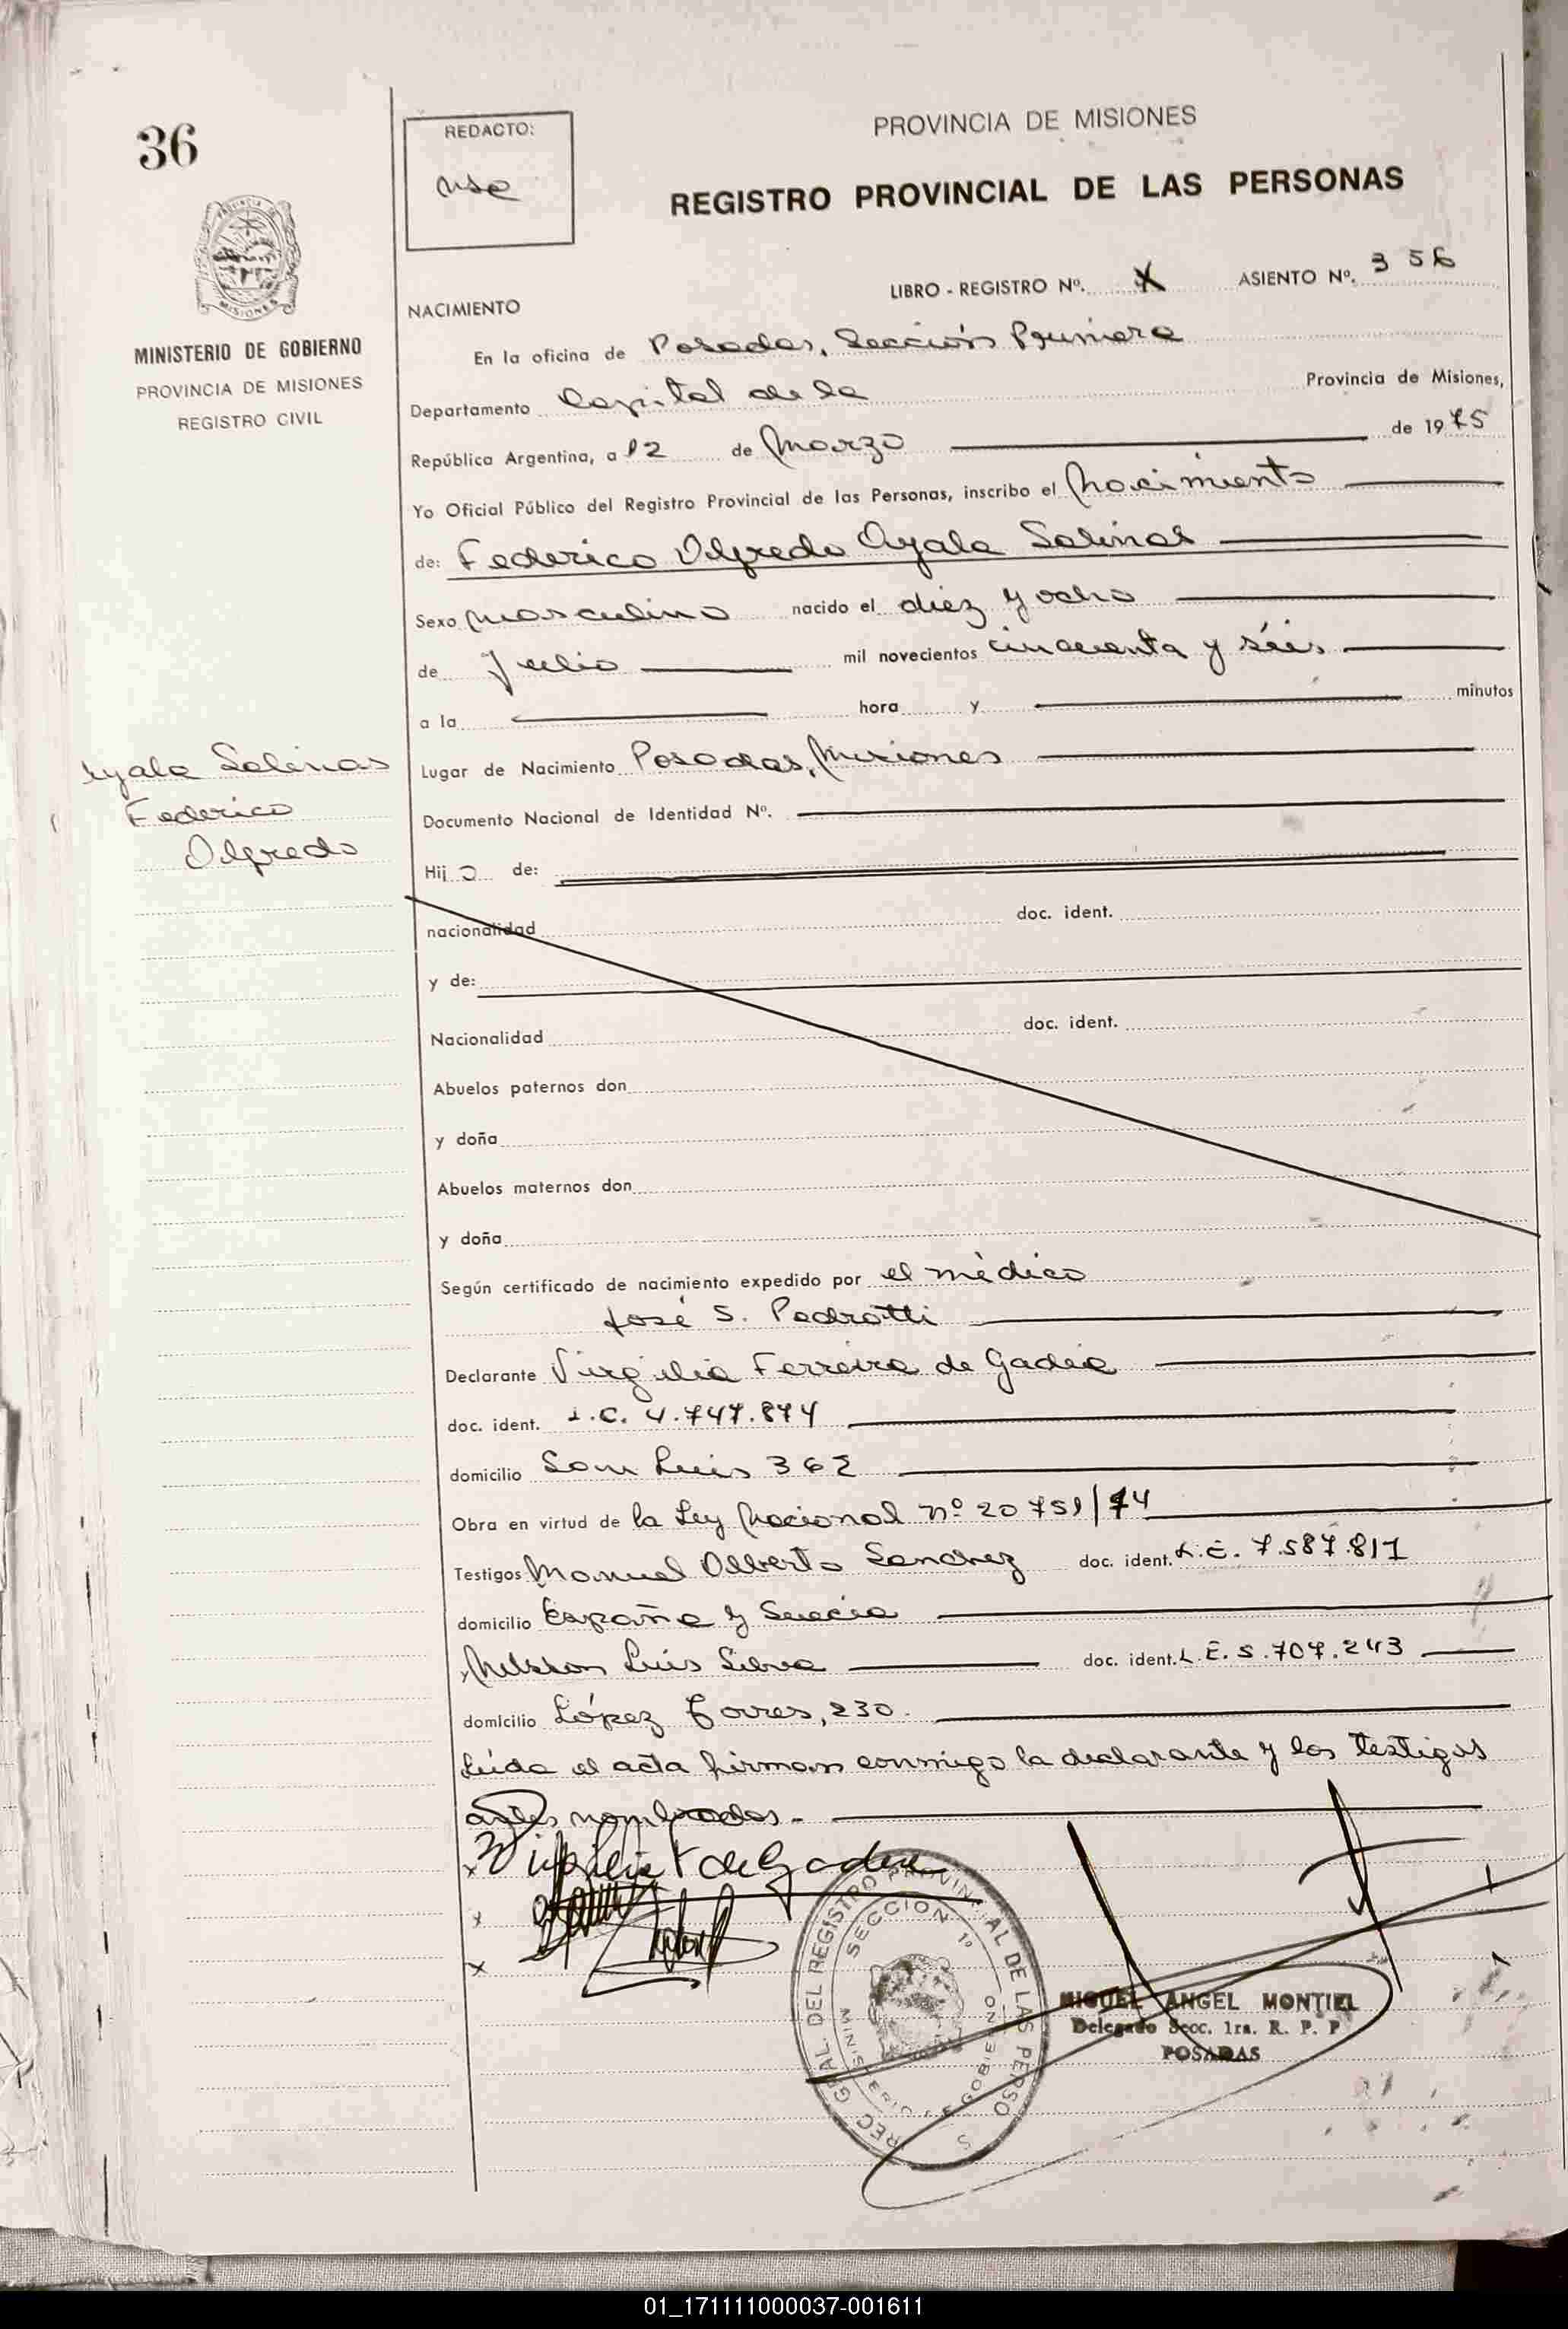 36
REDACTO:
PROVINCIA DE MISIONES
REGISTRO PROVINCIAL DE LAS PERSONAS
LIBRO - REGISTRO Nº. X ASIENTO Nº. 356
NACIMIENTO
MINISTERIO DE GOBIERNO
PROVINCIA DE MISIONES
REGISTRO CIVIL
En la oficina de Posadas, Sección Primera
Departamento Capital de la Provincia de Misiones,
República Argentina, a 12 de Marzo de 1975
Yo Oficial Público del Registro Provincial de las Personas, inscribo el Nacimiento
de: Federico Alfredo Ayala Salinas
Sexo Masculino nacido el diez y ocho
de Julio mil novecientos cincuenta y séis
a la hora y minutos
Ayala Salinas
Federico
Alfredo
Lugar de Nacimiento Posadas, Misiones
Documento Nacional de Identidad Nº.
Hijo de:
nacionalidad doc. ident.
y de:
Nacionalidad doc. ident.
Abuelos paternos don
y doña
Abuelos maternos don
y doña
Según certificado de nacimiento expedido por el mèdico
José S. Pedrotti
Declarante Virgilia Ferreira de Gadea
doc. ident. L.C. 4.747.874
domicilio San Luis 362
Obra en virtud de la Ley Nacional nº 20751/74
Testigos Manuel Alberto Sanchez doc. ident. L.E. 7.587.817
domicilio España y Suecia
y Nelsson Luis Silva doc. ident. L.E. 5.707.243
domicilio López Torres, 230.
Leída el acta firman conmigo la declarante y los testigos
antes nombrados.-
x Virgilia F de Gadea
x
x
REC. GRAL. DEL REGISTRO PROVINCIAL DE LAS PERSO S
SECCION 1º
MINISTERIO DE GOBIERNO
MIGUEL ANGEL MONTIEL
Delegado Secc. 1ra. R. P. P
POSADAS
01_171111000037-001611